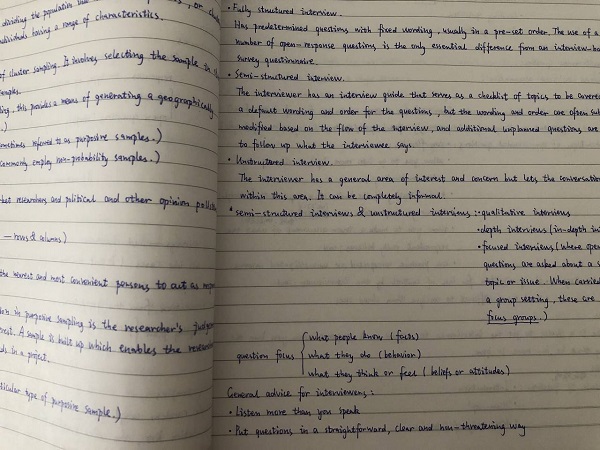 dividing the population into
individuals having a range of characteristics.
of cluster sampling. It involves selecting the sample in
samples.
this provides a means of generating a geographically
sometimes referred to as purposive samples.)
commonly employ non-probability samples.)
researchers and political and other opinion
— rows & columns)
the nearest and most convenient persons to act as
in purposive sampling is the researcher's
A sample is built up which enables the
in a project.
type of purposive sample.)
• Fully structured interview.
Has predetermined questions with fixed wording, usually in a pre-set order. The use of a
number of open-response questions is the only essential difference from an interview-
survey questionnaire.
• Semi-structured interview.
The interviewer has an interview guide that serves as a checklist of topics to be covered
a default wording and order for the questions, but the wording and order are often
modified based on the flow of the interview, and additional unplanned questions are
to follow up what the interviewee says.
• Unstructured interview.
The interviewer has a general area of interest and concern but lets the
within this area. It can be completely informal.
* semi-structured interviews & unstructured interviews : · qualitative interviews
• depth interviews (in-depth
• focused interviews (where
questions are asked about a
topic or issue. When carried
a group setting, these are
focus groups.)
question focus { what people know (facts)
what they do (behavior)
what they think or feel (beliefs or attitudes)
General advice for interviewers:
• Listen more than you speak
• Put questions in a straightforward, clear and non-threatening way